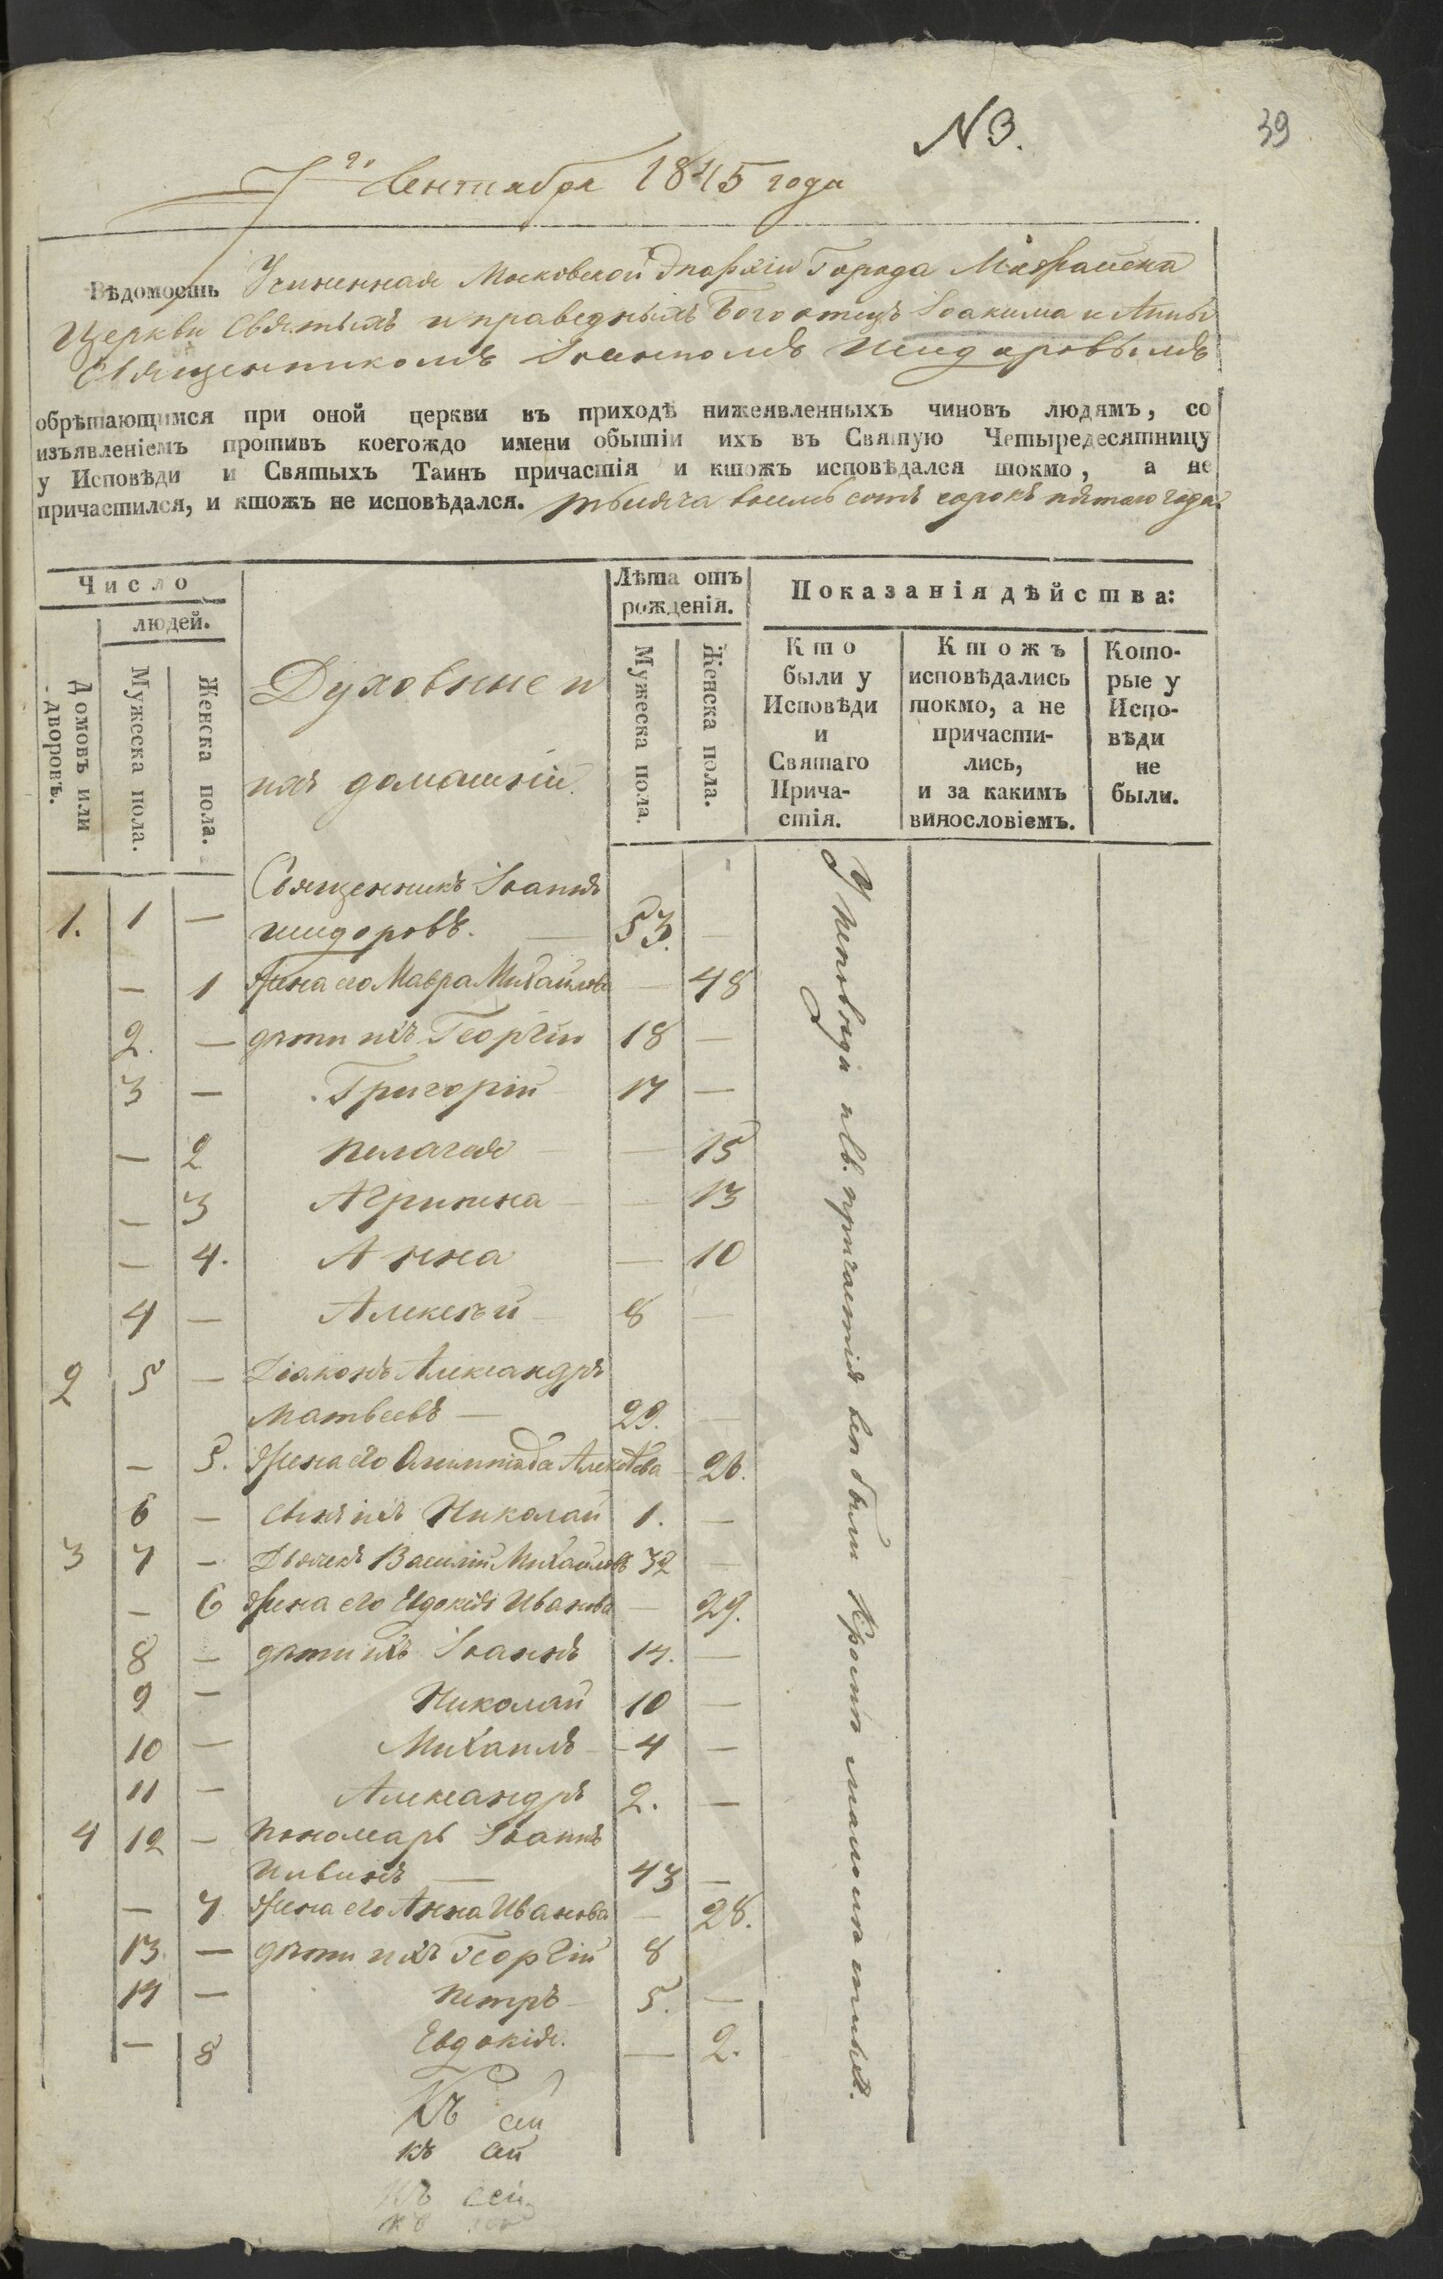 N 3.
39
7го Сентября 1845 года
Вѣдомость Учиненная Московской Эпархіи Города Можайска
Церкви Святыхъ и праведныхъ Богоотецъ Іоакима и Анны
Священникомъ Іоанномъ Исидоровымъ
обрѣтающимся при оной церкви въ приходѣ нижеявленныхъ чиновъ людямъ, со
изъявленіемъ противъ коегождо имени обытіи ихъ въ Святую Четыредесятницу
у Исповѣди и Святыхъ Таинъ причастія и ктожъ исповѣдался токмо, а не
причастился, и ктожъ не исповѣдался. тысяча восемь сотъ сорокъ пятаго года.
Число
людей.
Домовъ или дворовъ.
Мужеска пола.
Женска пола.
Духовные и
ихъ домашніи.
Лѣта отъ
рожденія.
Мужеска пола.
Женска пола.
Показанія дѣйства:
Кто
были у
Исповѣди
и
Святаго
Прича-
стія.
Ктожъ
исповѣдались
токмо, а не
причасти-
лись,
и за какимъ
винословіемъ.
Кото-
рые у
Испо-
вѣди
не
были.
Священникъ Іоаннъ
1. 1 — Исидоровъ. — 53. —
— 1 Жена его Мавра Михайлова — 48
2. — дѣти ихъ Георгіи 18 —
3 — Григорій 17 —
— 2 Пелагея — 15
— 3 Агрипина — 13
— 4. Анна — 10
4 — Алексѣй 8 —
2 5 — Діаконъ Александръ
Матвеевъ — 29. —
— 5. Жена его Олимпіада Алексѣева — 26.
6 — сынъ ихъ Николай 1. —
3 7 — Дьячекъ Василій Михайловъ 32 —
— 6 Жена его Евдокія Иванова — 29.
8 — дѣти ихъ Іоаннъ 14. —
9 — Николай 10 —
10 — Михаилъ 4 —
11 — Александръ 2. —
4 12 — Пономарь Іоаннъ
Ивинъ — 43 —
— 7 Жена его Анна Иванова — 28.
13. — дѣти ихъ Георгій 8
14 — Петръ 5. —
— 8 Евдокія. — 2.
У исповѣди и св. причастія всѣ были кромѣ малолѣтныхъ.
Къ сей
къ сей
Къ сей